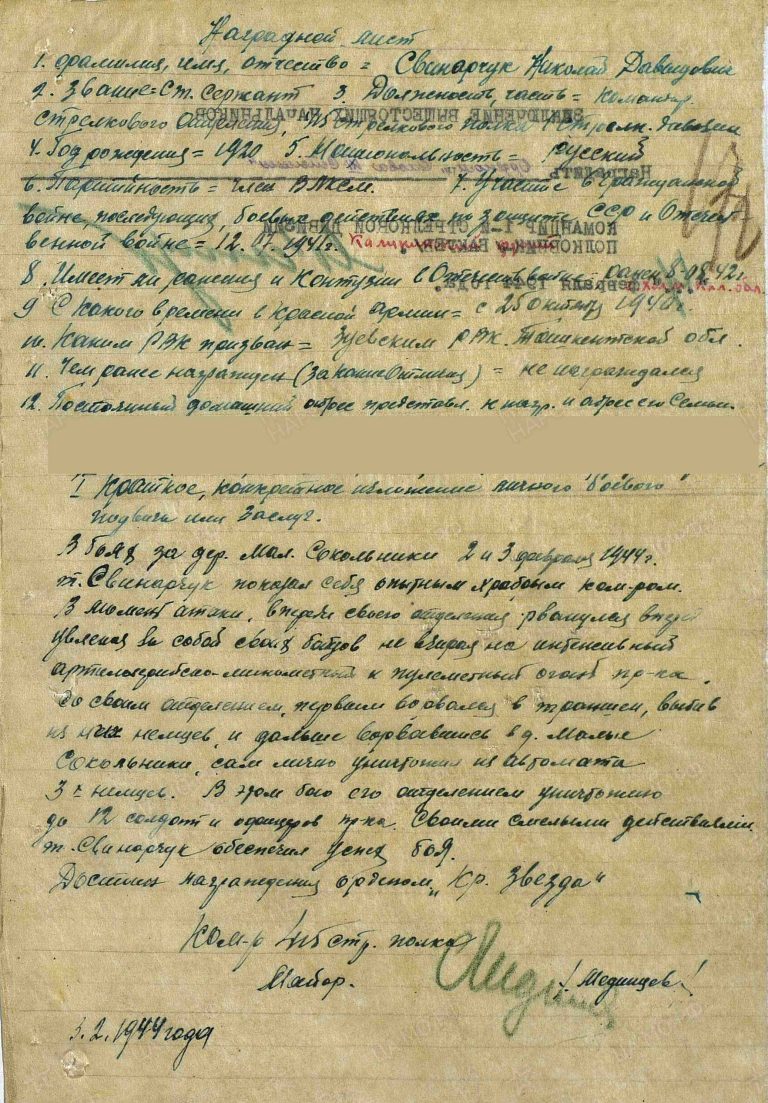 Наградной лист
1. Фамилия, имя, отчество = Свинарчук Николай Давыдович
2. Звание = Ст. сержант 3. Должность, часть = командир
стрелкового отделения, стрелкового полка 1 стрелк. дивизии
4. Год рождения = 1920 5. Национальность = русский
6. Партийность = член ВЛКСМ. 7. Участие в гражданской
войне, последующих боевых действиях по защите СССР и Отечест-
венной войне = 12.07.1941г. Калининский фронт
8. Имеет ли ранения и контузии в Отечеств. войне = ранен 5-08.42г.
9 С какого времени в Красной Армии = с 25 октября 1940г.
10. Каким РВК призван = РВК. Ташкентской обл.
11. Чем ранее награжден (за какие отличия) = не награждался
12. Постоянный домашний адрес представл. к нагр. и адрес его семьи.
I Краткое, конкретное изложение личного боевого
подвига или заслуг.
В боях за дер. Мал. Сокольники 2 и 3 февраля 1944г.
т. Свинарчук показал себя опытным храбрым ком-ром.
В момент атаки, впереди своего отделения рванулся вперед
увлекая за собой своих бойцов не взирая на интенсивный
артиллерийско-минометный и пулеметный огонь пр-ка.
Со своим отделением первым ворвался в траншеи, выбив
из них немцев, и дальше ворвавшись в д. Малые
Сокольники, сам лично уничтожил из автомата
3-х немцев. В этом бою его отделением уничтожено
до 12 солдат и офицеров пр-ка. Своими смелыми действиями
т. Свинарчук обеспечил успех боя.
Достоин награждения орденом „Кр. Звезда"
Ком-р 415 стр. полка
Майор. /Мединцев/
3.2.1944 года